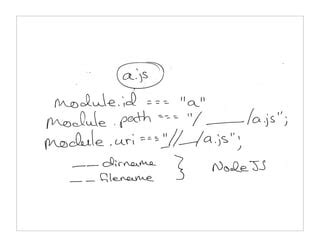 a.js
module.id === "a"
module.path === "/ ____ /a.js";
module.uri === "//__/a.js";
__ dirname
__ filename } NodeJS